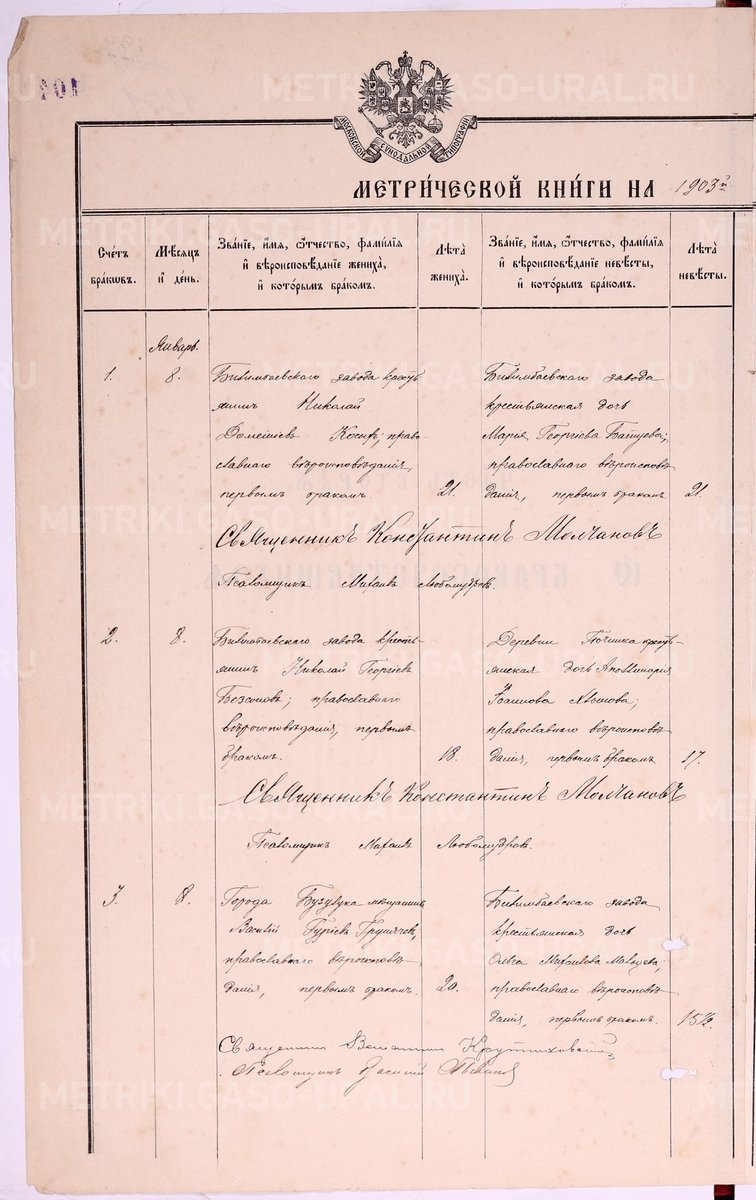 101
МОСКОВСКОЙ СѴНОДАЛЬНОЙ ТИПОГРАФІИ
МЕТРИ́ЧЕСКОЙ КНИ́ГИ НА 1903й
Сче́тъ бра́кѡвъ.
Мѣ́сяцъ и҆ де́нь.
Зва́нїе, и҆́мя, ѻ҆́тчество, фами́лїя и҆ вѣроисповѣ́данїе жениха̀, и҆ кото́рымъ бра́комъ.
Лѣ́та жениха̀.
Зва́нїе, и҆́мя, ѻ҆́тчество, фами́лїя и҆ вѣроисповѣ́данїе невѣ́сты, и҆ кото́рымъ бра́комъ.
Лѣ́та невѣ́сты.
Январь.
1.
8.
Билимбаевскаго завода кресть
янинъ Николай
Доментіевъ Косых; право-
славнаго вѣроисповѣданія,
первымъ бракомъ.
21.
Билимбаевскаго завода
крестьянская дочь
Марья Георгіева
православнаго вѣроисповѣ
данія, первымъ бракомъ
21.
Священникъ Константинъ Молчановъ
Псаломщикъ Михаилъ Любомудровъ.
2.
8.
Билимбаевскаго завода кресть-
янинъ Николай Георгіевъ
Безсоновъ; православнаго
вѣроисповѣданія, первымъ
бракомъ.
18.
Деревни Починка кресть-
янская дочь Аполлинарія
православнаго вѣроисповѣ
данія, первымъ бракомъ
17.
Священникъ Константинъ Молчановъ
Псаломщикъ Михаилъ Любомудровъ.
3.
8.
Города Бузулука мѣщанинъ
Василій Гуріевъ
православнаго вѣроисповѣ
данія, первымъ бракомъ.
20.
Билимбаевскаго завода
крестьянская дочь
Ольга Михаилова
православнаго вѣроисповѣ
данія, первымъ бракомъ.
15½
Священникъ Веніаминъ
Псаломщикъ Василій
METRIKI.GASO-URAL.RU